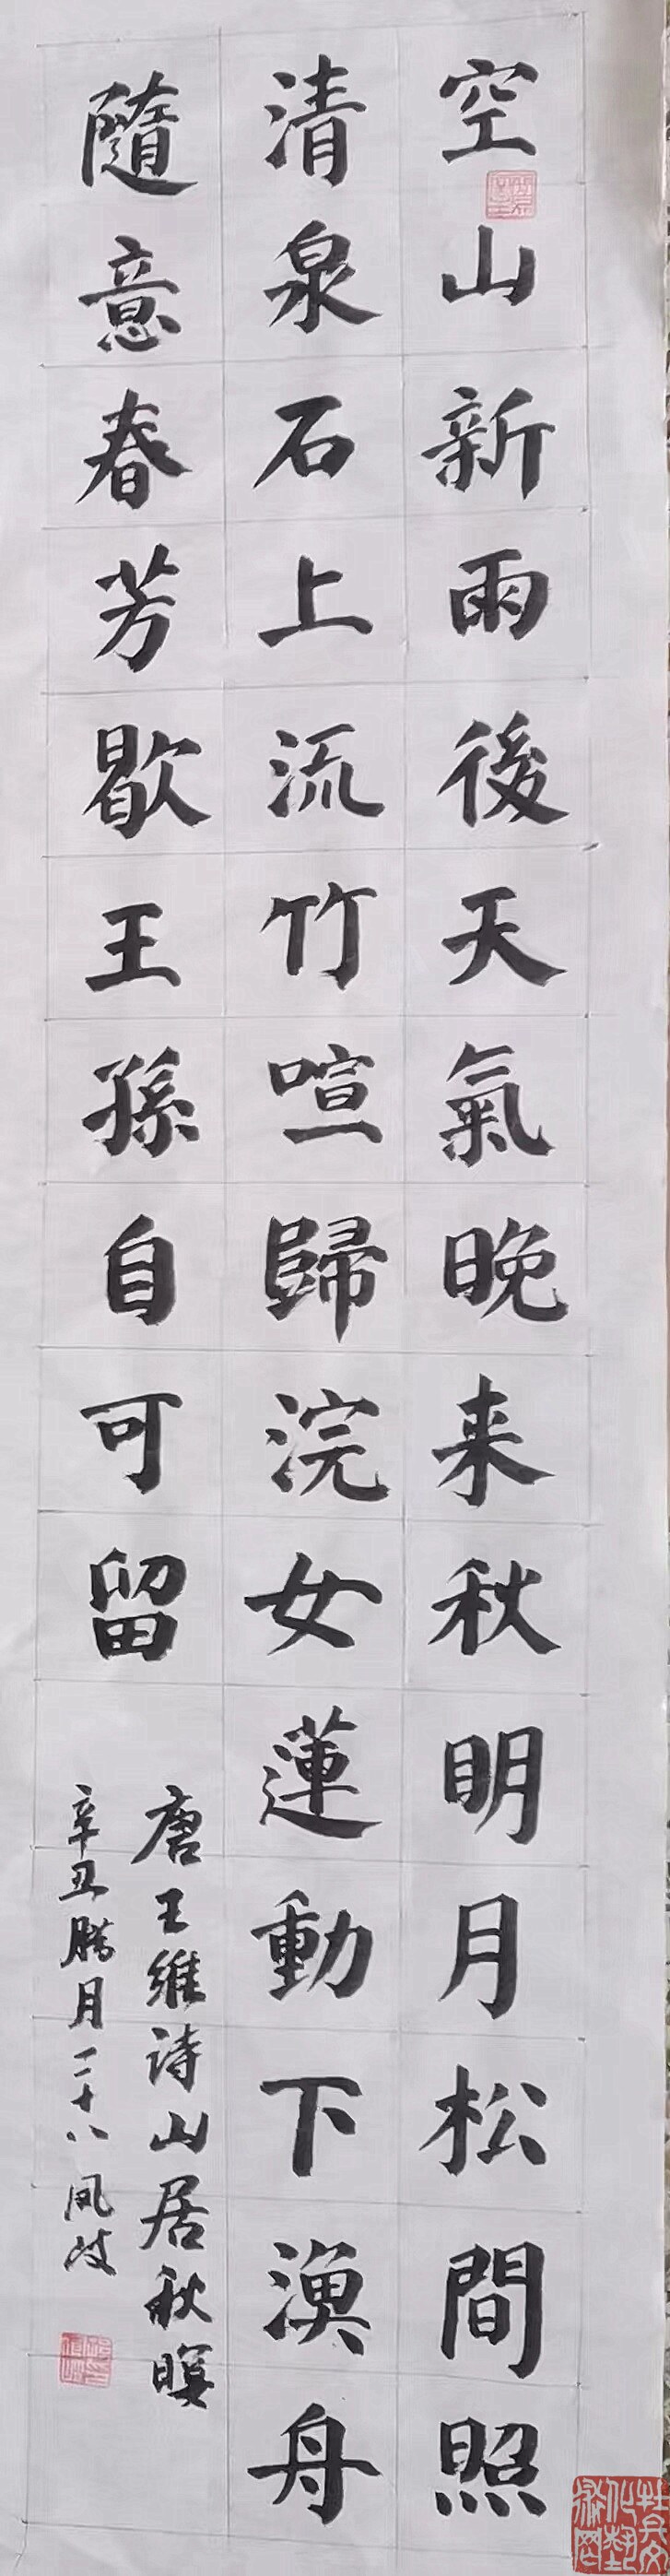 空山新雨後天氣晚来秋明月松間照
清泉石上流竹喧歸浣女蓮動下漁舟
隨意春芳歇王孫自可留
唐王維诗山居秋暝
辛丑腊月二十八凤岐